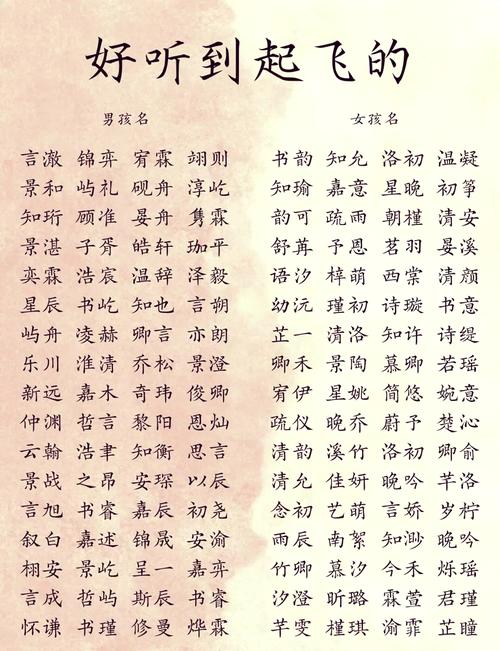 好听到起飞的
男孩名 女孩名
言澈 锦弈 宥霖 翊则 书韵 知允 洛初 温凝
景和 屿礼 砚舟 淳屹 知瑜 嘉意 星晚 初筝
知珩 顾准 晏舟 隽霖 韵可 疏雨 朝槿 清安
景湛 子胥 皓轩 珈平 舒苒 予恩 茗羽 晏溪
奕霖 浩宸 温辞 泽毅 语汐 梓萌 西棠 清颜
星辰 书屹 知也 言朔 幼沅 瑾初 诗璇 书意
屿舟 凌赫 卿言 亦朗 芷一 清洛 知许 诗缇
乐川 淮清 乔松 景澄 卿禾 景陶 慕卿 若瑶
新远 嘉木 奇玮 俊卿 宥伊 星姚 简悠 婉意
仲渊 哲言 黎阳 恩灿 疏仪 晚乔 蔚予 楚沁
云翰 浩聿 知衡 思言 清韵 溪竹 洛初 卿俞
景战 之昂 安琛 以辰 清允 佳妍 晚吟 芊洛
言旭 书睿 嘉辰 初尧 念初 艺萌 言娇 岁柠
叙白 嘉述 锦晟 安渝 雨辰 南絮 知渺 晚吟
栩安 景屹 呈一 嘉弈 竹卿 慕汐 今禾 烁瑶
言成 哲屿 斯辰 书睿 汐澄 昕璐 霖萱 君瑾
怀谦 书瑾 修曼 烨霖 芊雯 槿琪 渝霏 芷瞳